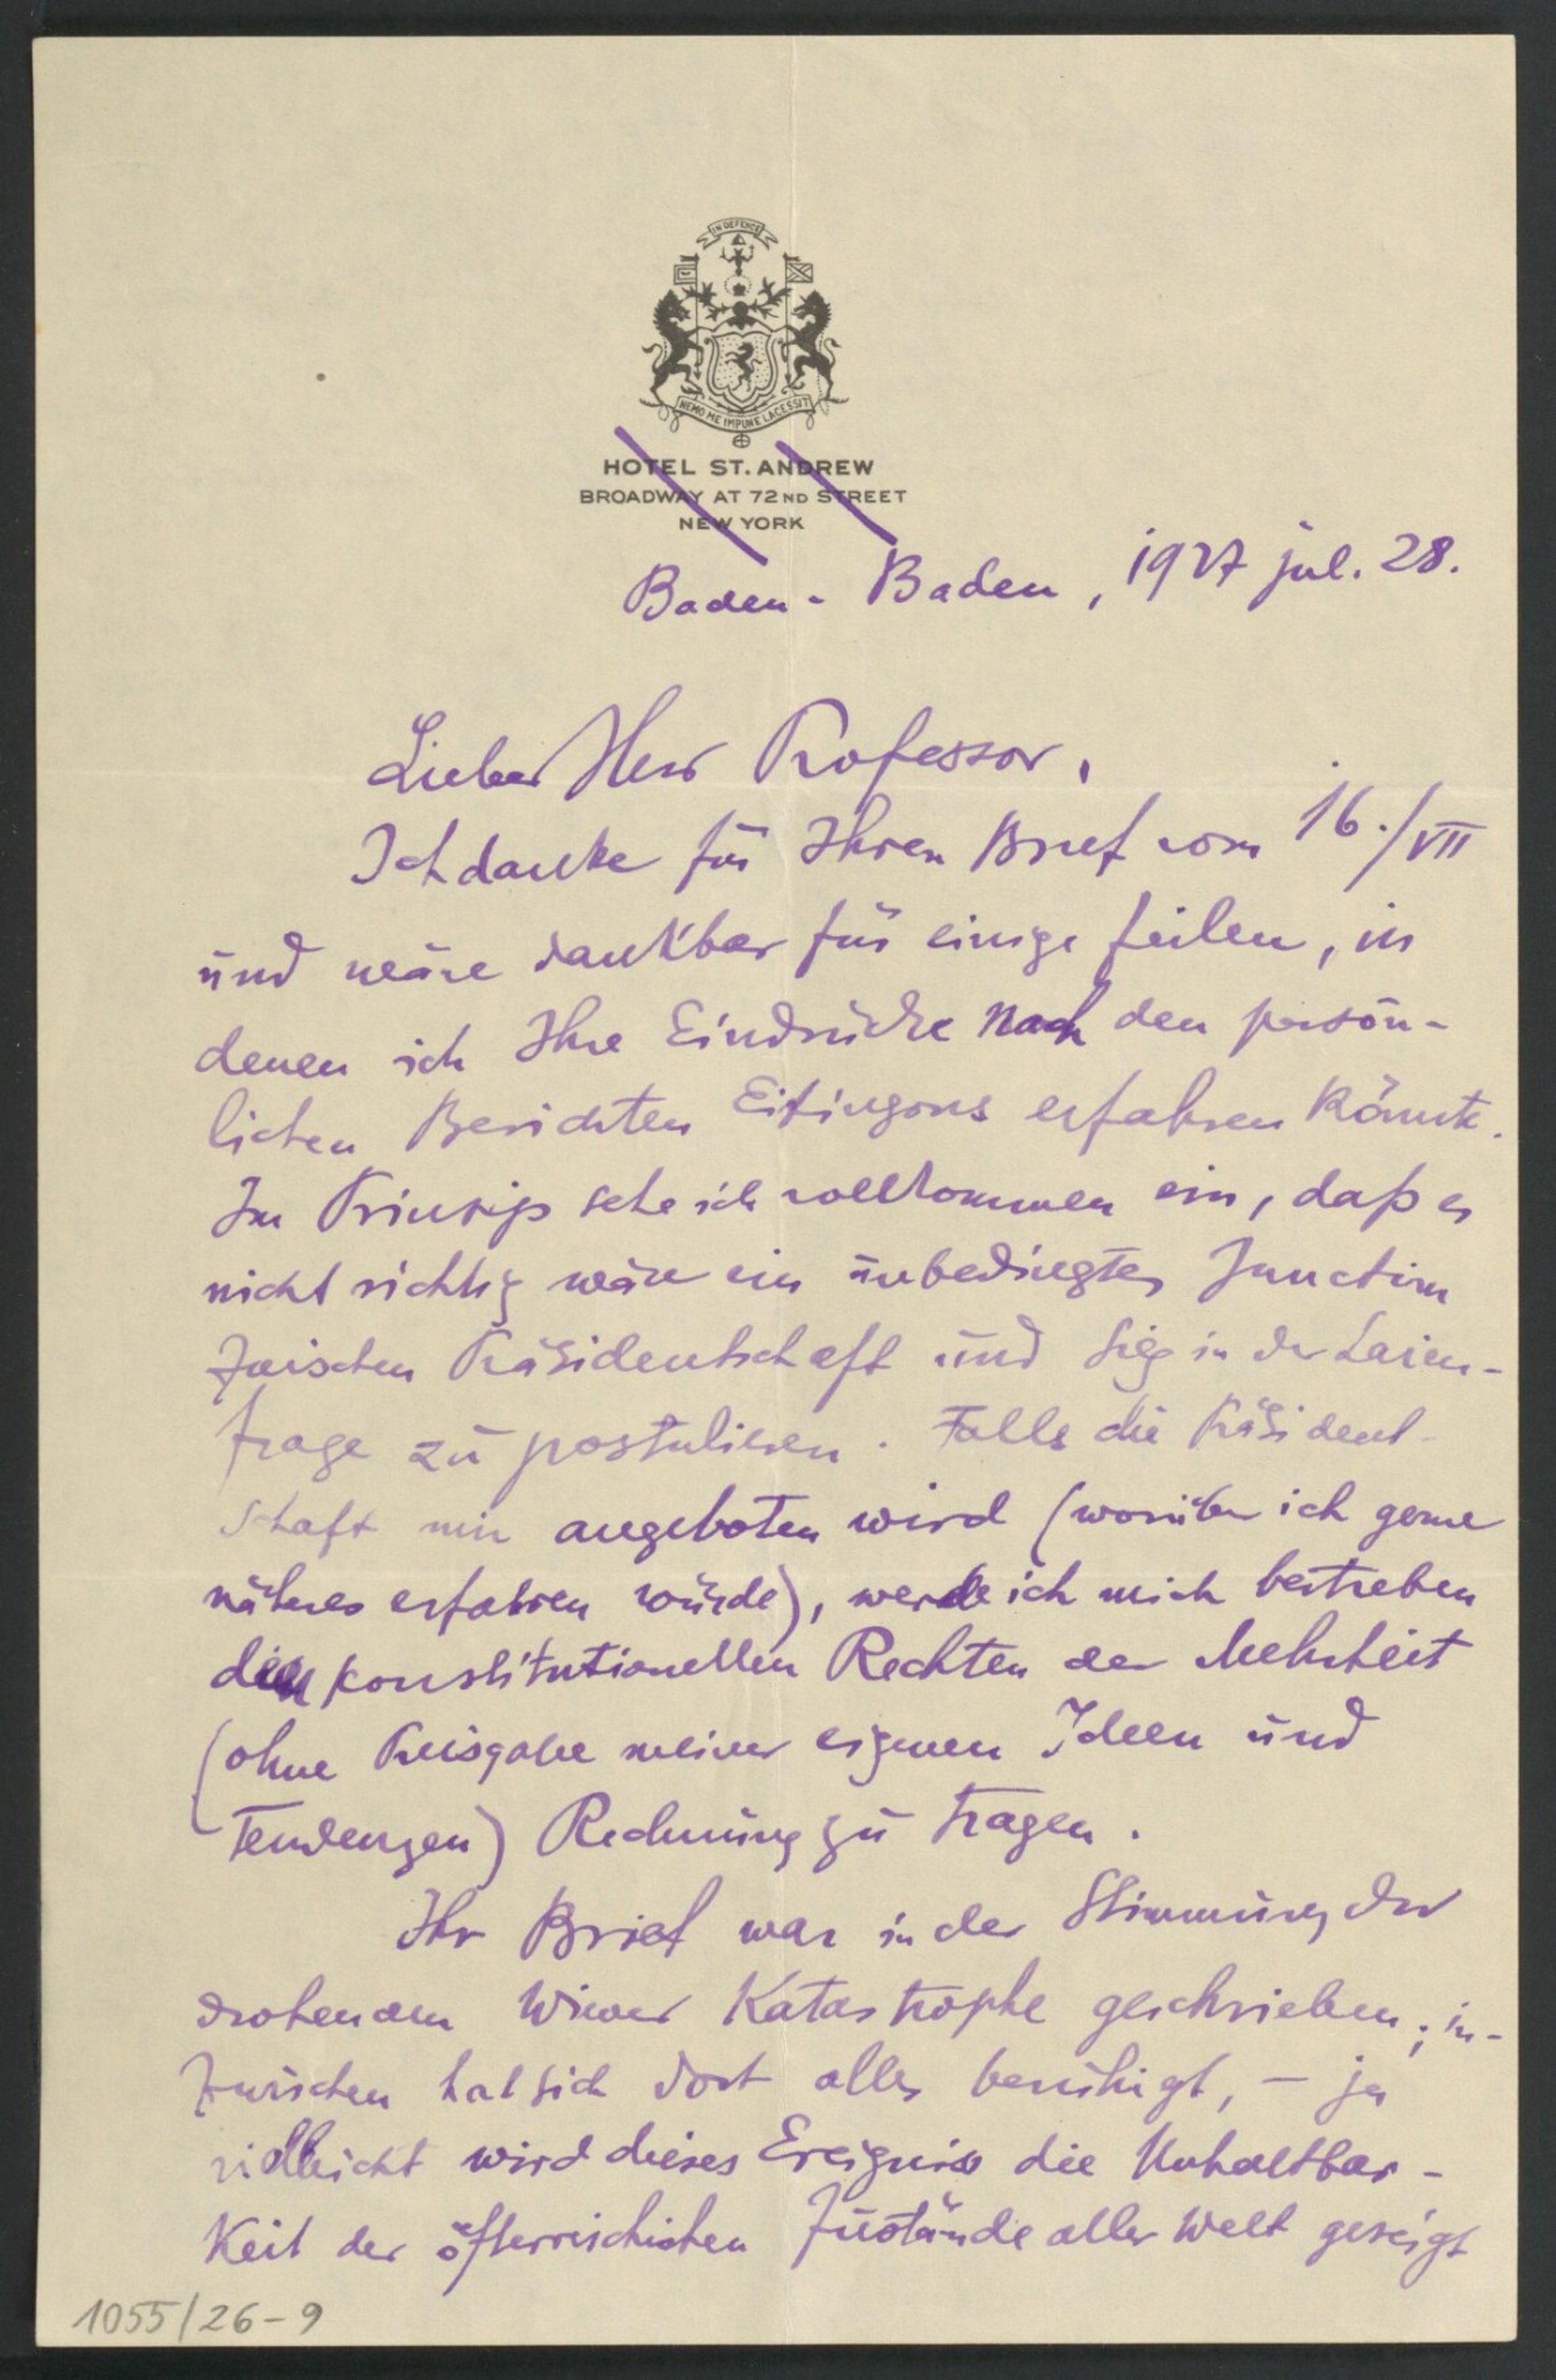 IN DEFENCE
NEMO ME IMPUNE LACESSIT
HOTEL ST. ANDREW
BROADWAY AT 72ND STREET
NEW YORK
Baden-Baden, 1927 jul. 28.
Lieber Herr Professor,
Ich danke für Ihren Brief vom 16./VII
und wäre dankbar für einige Zeilen, in
denen ich Ihre Eindrücke nach den persön-
lichen Berichten Eitingons erfahren könnte.
Im Prinzip sehe ich vollkommen ein, daß es
nicht richtig wäre ein unbedingtes Junctim
zwischen Präsidentschaft und Sieg in der Laien-
frage zu postulieren. Falls die Präsident-
schaft mir angeboten wird (worüber ich gerne
näheres erfahren würde), werde ich mich bestreben
den konstitutionellen Rechten der Mehrheit
(ohne Preisgabe meiner eigenen Ideen und
Tendenzen) Rechnung zu tragen.
Ihr Brief war in der Stimmung der
drohenden Wiener Katastrophe geschrieben; in-
zwischen hat sich dort alles beruhigt, – ja
vielleicht wird dieses Ereignis die Unhaltbar-
keit der österreichischen Zustände aller Welt gezeigt
1055/26-9